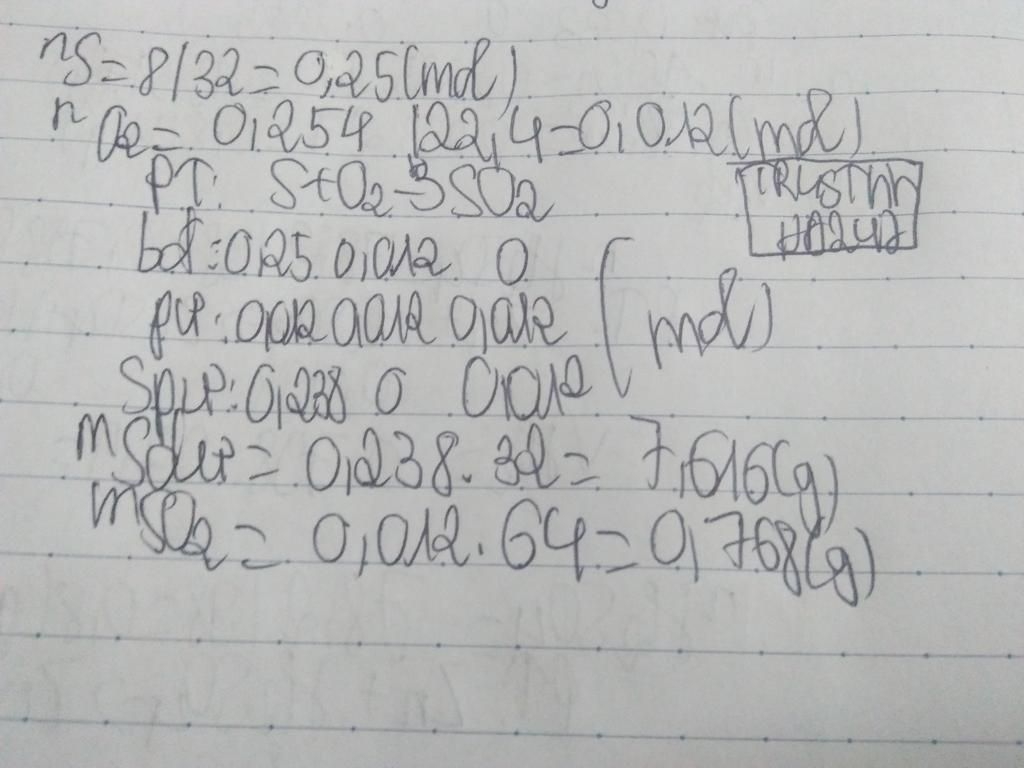 nS = 8/32 = 0,25(mol)
nO2 = 0,254 /22,4 = 0,012(mol)
PT: S+O2->SO2
bđ: 0,25 0,012 0
pư: 0,012 0,012 0,012 (mol)
Spư: 0,238 0 0,012
mSdư = 0,238.32 = 7,616(g)
mSO2 = 0,012.64 = 0,768(g)